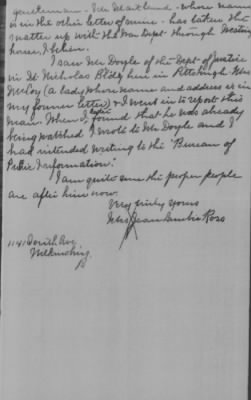 gentleman. Mr Maitland - whose name
is in the other letter of mine - has taken the
matter up with the War Dept through
house, I
I saw Mr Doyle of the Dept of Justice
in St. Nicholas Bldg here in Pittsburgh Mrs
McCoy (a lady whose name and address is in
my former letter) & I went in to report this
man. When I later found that he was already
being watched I wrote to Mr Doyle and I
had intended writing to the "Bureau of
Public Information."
I am quite sure the proper people
are after him now.
Very truly yours
Mrs Jean Ross
Ave
Wilkinsburg.